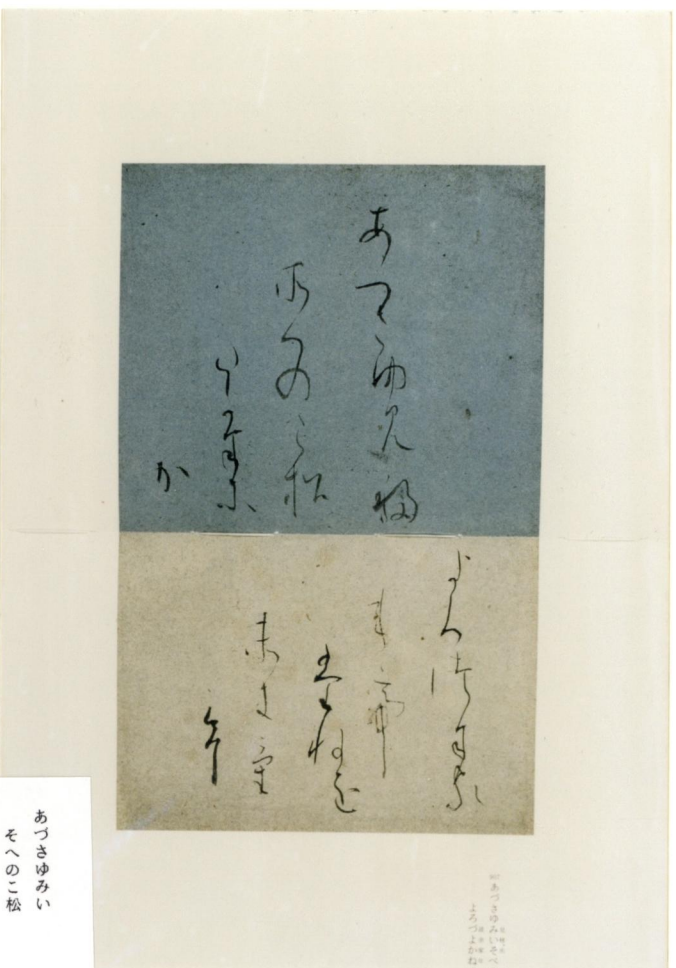 あつさゆみい
そへのこ松
たかよに
か
よろつよか
ねて
たねを
まきけ
む
あづさゆみい
そへのこ松
あづさゆみいそべ
よろづよかね